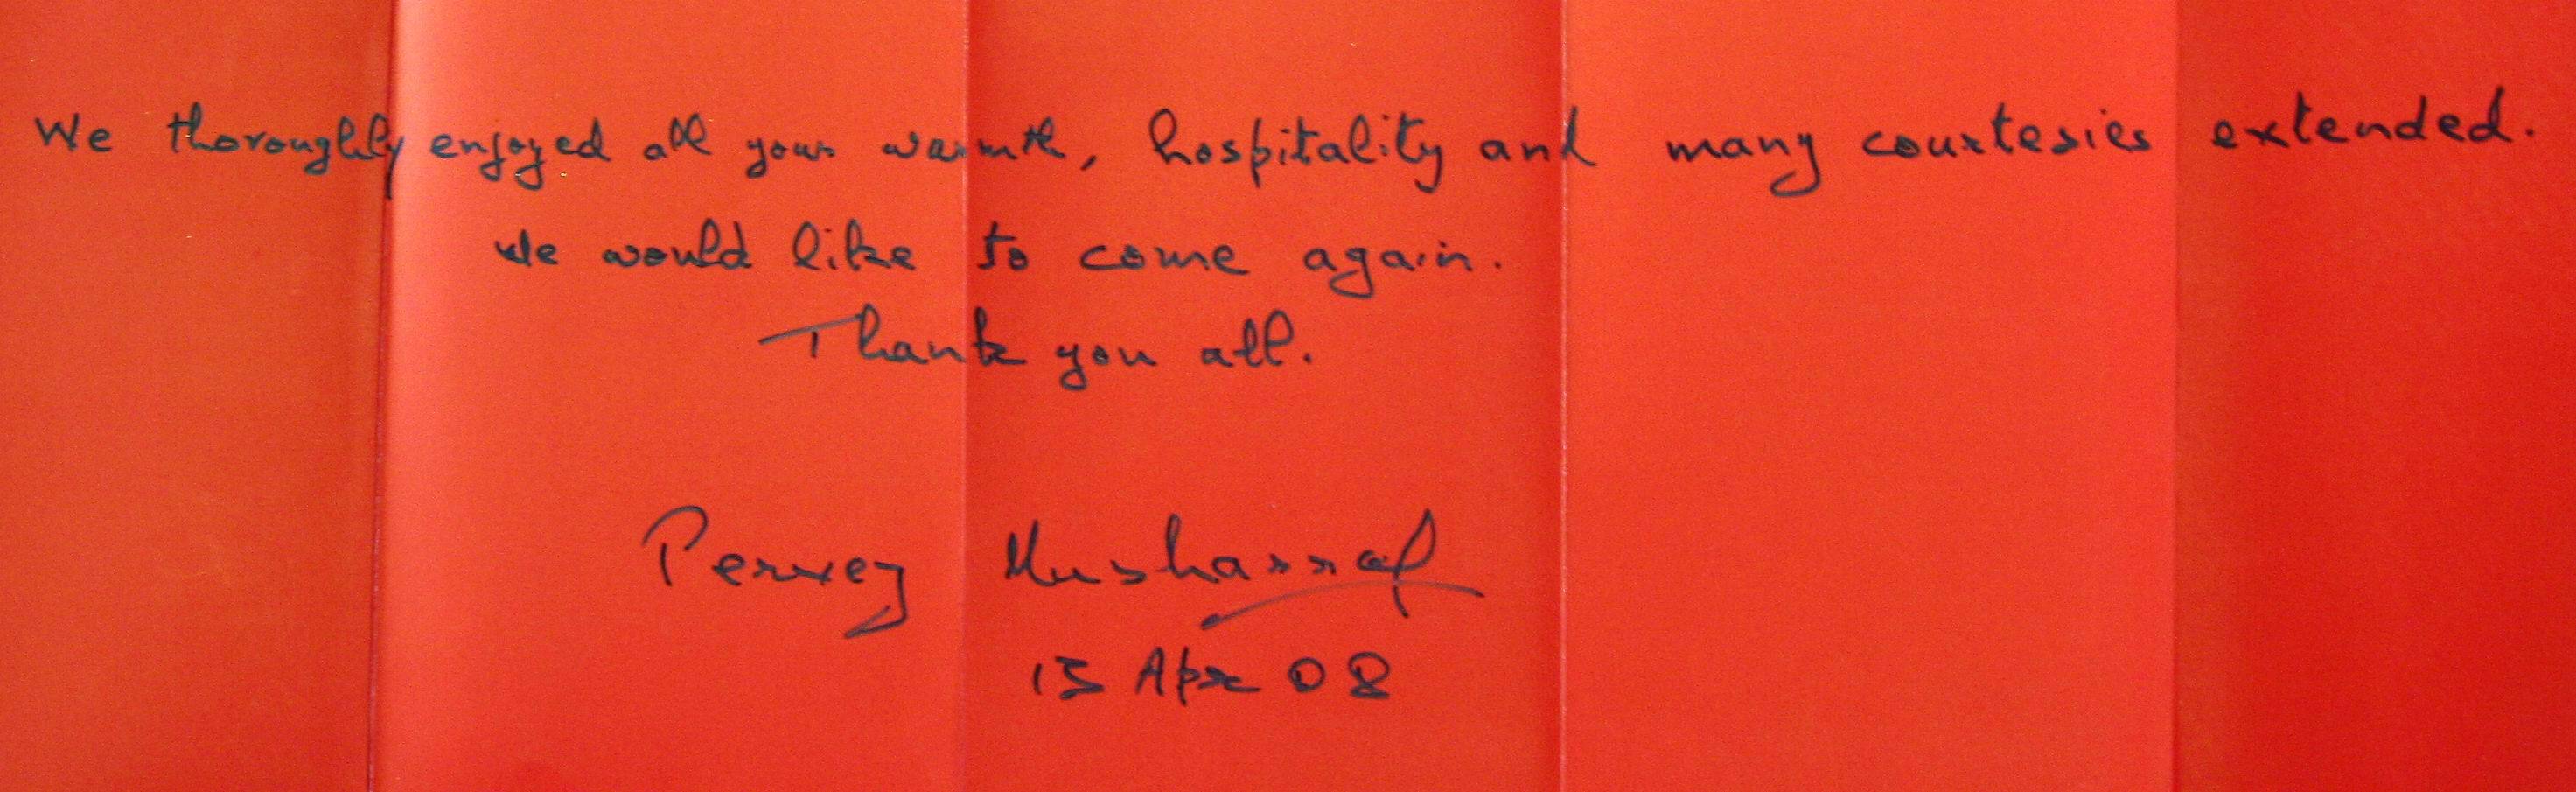 We thoroughly enjoyed all your warmth, hospitality and many courtesies extended.
We would like to come again.
Thank you all.
Pervez Musharraf
15 Apr 08